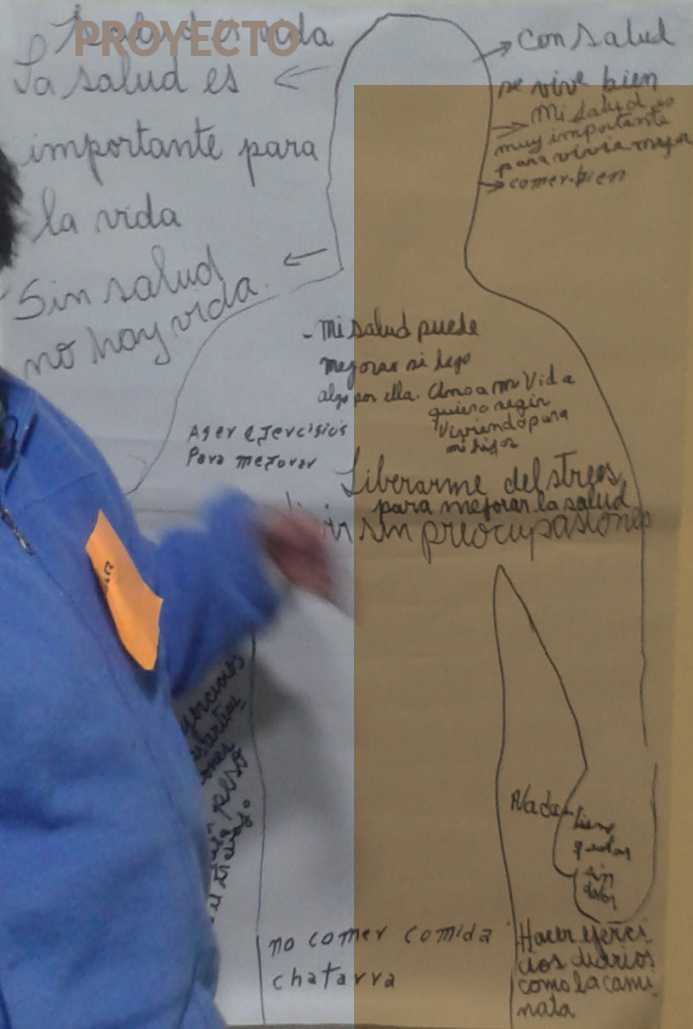 PROYECTO
Salud es vida
La salud es
importante para
la vida
Sin salud
no hay vida.
Con salud
se vive bien
Mi salud es
muy importante
para vivir mejor
comer bien
- mi salud puede
mejorar si hago
algo por ella. Amo a mi Vida
quiero seguir
Viviendo para
mi hijos
Aser ejercisios
Para mejorar
Liberarme del strees
para mejorar la salud
sin preocupasiones
peso
trabajo.
sin
dolor
no comer comida
chatarra
Hacer ejerci
cios diarios
como la cami
nata